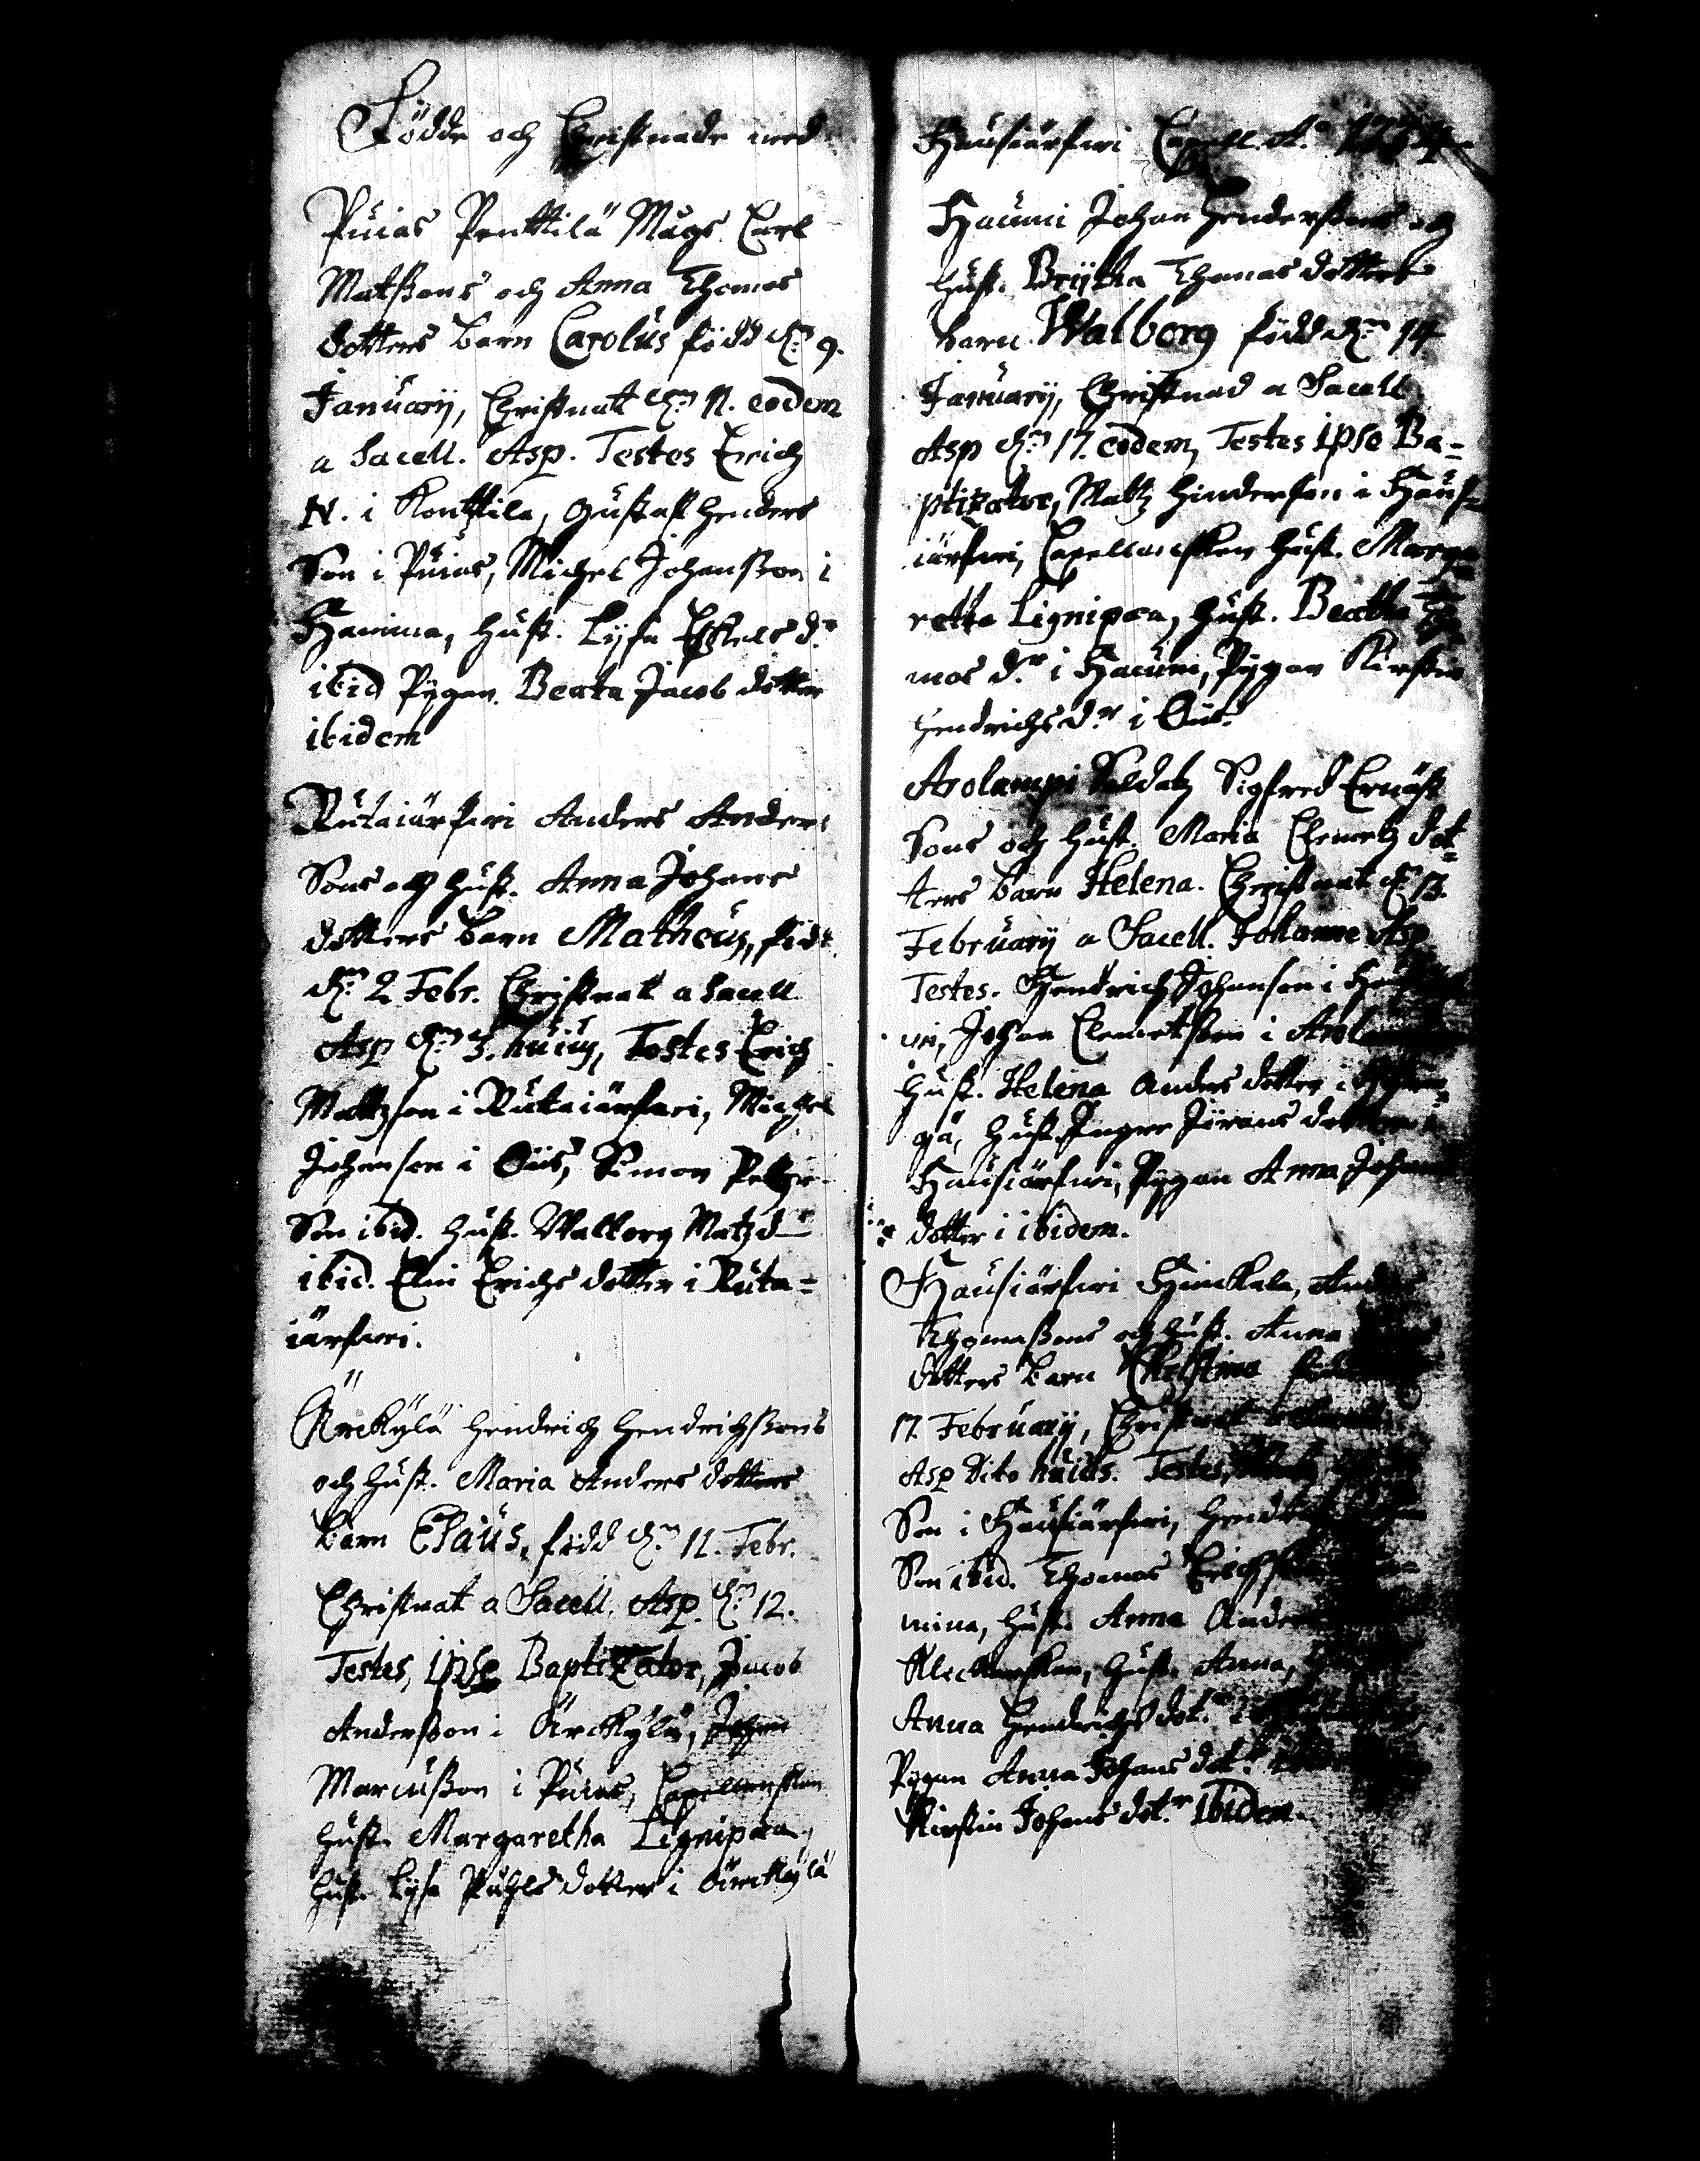 Födde och Christnade wed
Puias Penttilä Mags Carl
Matssons och Anna Thomas
dotters barn Carolus född d:n 9.
January, Christnatt d:n 11. eodem
a Sacell. Asp. Testes Erich
N. i Konttila, Gustaff Henders
Son i Puias, Michel Johansson i
Hamina, Hust. Lysa Eskels d:r
ibid Pygan. Beata Jacob dotter
ibidem
Rutaiärfwi Anders Anders
Sons och Hust. Anna Johans
dotters barn Matheus, född
d:n 2 Febr. Christnatt a Sacell
Asp d:n 3. huius, Testes Erich
Mattzson i Rutaiärfwi, Michel
Johanson i Oiis, Simon
Son ibid. Hust. Walborg Matzd
ibid. Elin Erichs dotter i Ruta-
iärfwi.
Ärckylä Hendrich Hendrichssons
och Hust. Maria Anders dotters
barn Esaus, född d:n 11. Febr.
Christnat a Sacell. Asp. d:n 12.
Testes, ipse Baptizator, Jacob
Andersson i Ärckylä, Johan
Marcusson i Puias, Capellanskan
Hust. Margaretha Lignipæa,
Hust. Lysa Påhls dotter i Ärckylä
Hausiärfwi Capell. A:o
Haumi Johan Hendersons och
Hust. Brytha Thomas dotters
barn Walborg född d:n 14
January, Christnad a Sacell
Asp d:n 17. eodem, Testes ipse Ba-
ptizator, Mattz Hinderson i Haus-
iärfwi, Capellanskan Hust. Marga
retta Lignipæa, Hust. Beatha Tho
mas d:r i Haumi, Pygan Kirstin
Hendrichs d:r i Oiis.
Arolampi Soldatz Sigfred Ernäst
Sons och Hust. Maria Clemetz dot-
ters barn Helena. Christnat d:n 13.
February a Sacell. Johanne Asp
Testes. Hendrich Johanson i
wi, Johan Clemetsson i
Hust. Helena Anders dotter i
gä, Hust. Inger Jörans dotter i
Hausiärfwi, Pygan Anna Johans
dotter i ibidem.
Hausiärfwi Heickala, Anders
Thomassons och Hust. Anna
dotters barn Christina född
17. February, Christnat
Asp Dito huius. Testes,
Son i Hausiärfwi,
Son ibid. Thomas
mina, Hust. Anna Anders
Hust. Anna,
Anna Hendrichs dot:r i
Pygan Anna Johans dot:r
Kirstin Johans dot:r ibidem.